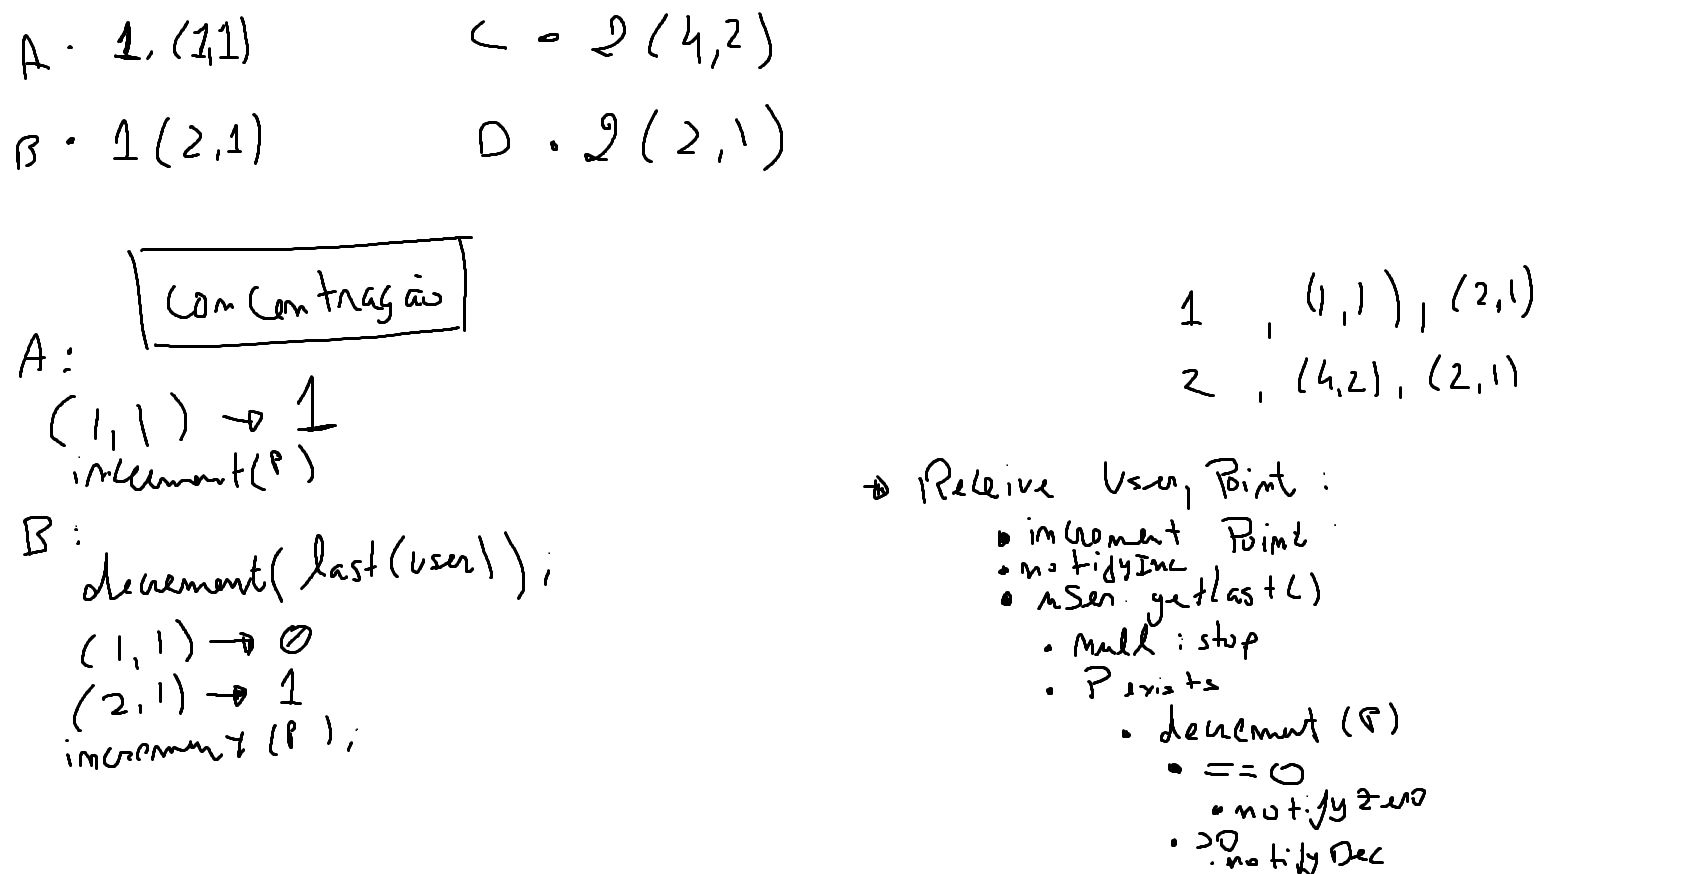 A · 1, (1,1)
B · 1 (2,1)
C - 2 (4,2)
D . 2 (2,1)
concentração
A:
(1,1) → 1
increment(P)
B:
decrement(last(user));
(1,1) → 0
(2,1) → 1
increment(P);
1 , (1,1), (2,1)
2 , (4,2), (2,1)
→ Receive User, Point :
• increment Point
• notifyInc
• user.getlast()
• null : stop
• P exists
• decrement (P)
• == 0
• notifyZero
• >0
• notifyDec